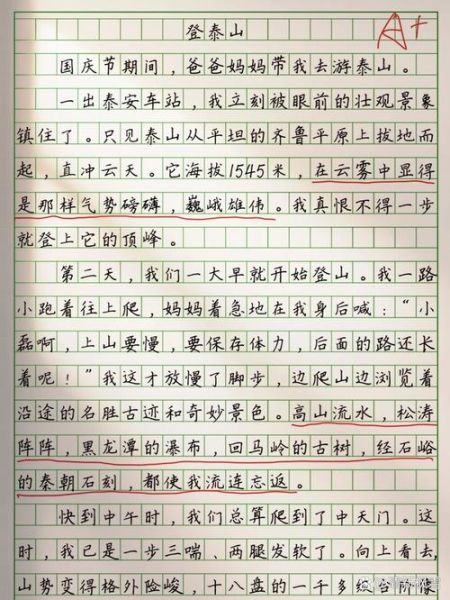 登泰山
A+
国庆节期间，爸爸妈妈带我去游泰山。
一出泰安车站，我立刻被眼前的壮观景象
镇住了。只见泰山从平坦的齐鲁平原上拔地而
起，直冲云天。它海拔1545米，在云雾中显得
是那样气势磅礴，巍峨雄伟。我真恨不得一步
就登上它的顶峰。
第二天，我们一大早就开始登山。我一路
小跑着往上爬，妈妈着急地在我身后喊：“小
磊啊，上山要慢，要保存体力，后面的路还长
着呢！”我这才放慢了脚步，边爬山边浏览着
沿途的名胜古迹和奇妙景色。高山流水，松涛
阵阵，黑龙潭的瀑布，回马岭的古树，经石峪
的秦朝石刻，都使我流连忘返。
快到中午时，我们总算爬到了中天门。这
时，我已是一步三喘、两腿发软了。向上看去，
山势变得格外险峻，十八盘的一千多级台阶像